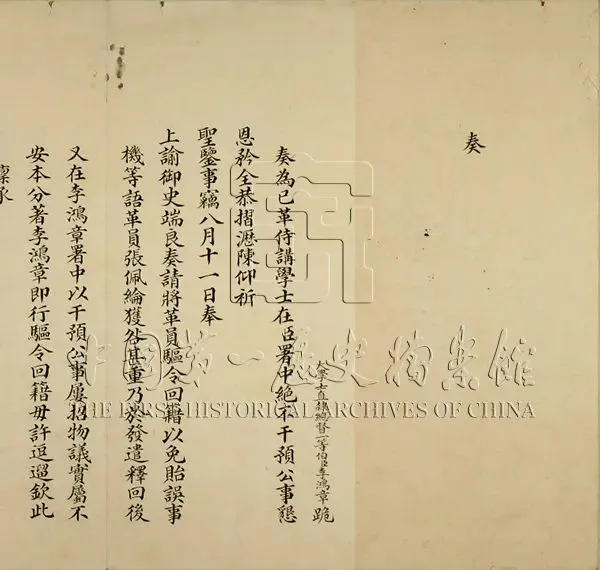 奏
大學士直隸總督一等伯臣李鴻章跪
奏為已革侍講學士在臣署中絕不干預公事懇
恩矜全恭摺瀝陳仰祈
聖鑒事竊八月十一日奉
上諭御史端良奏請將革員驅令回籍以免貽誤事
機等語革員張佩綸獲咎甚重乃於發遣釋回後
又在李鴻章署中以干預公事屢招物議實屬不
安本分著李鴻章即行驅令回籍毋許逗遛欽此
中國第一歷史檔案館
THE FIRST HISTORICAL ARCHIVES OF CHINA